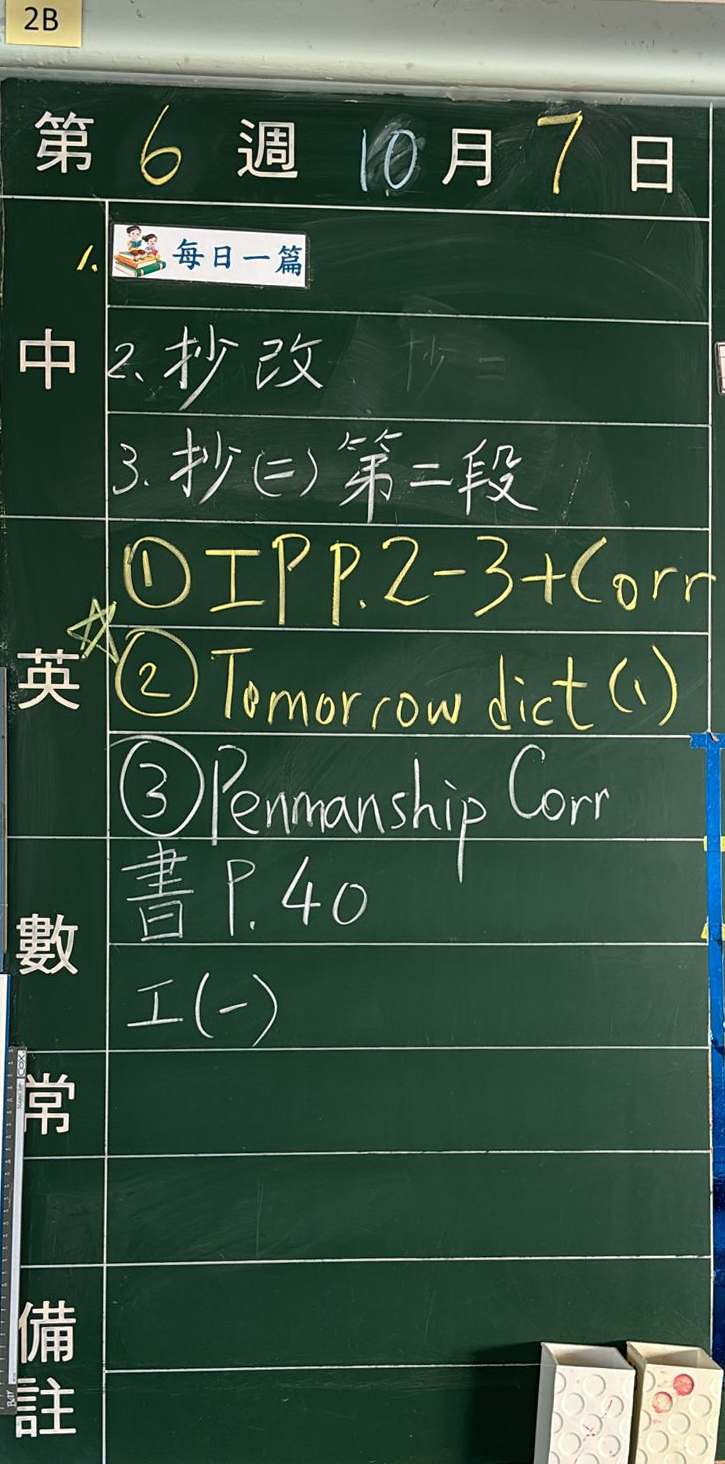 2B
第 6 週 10 月 7 日
中
1. 每日一篇
2. 抄改
3. 抄(二) 第二段
英
① IP P.2-3 + Corr
☆ ② Tomorrow dict (1)
③ Penmanship Corr
數
書 P. 40
工(一)
常
備註